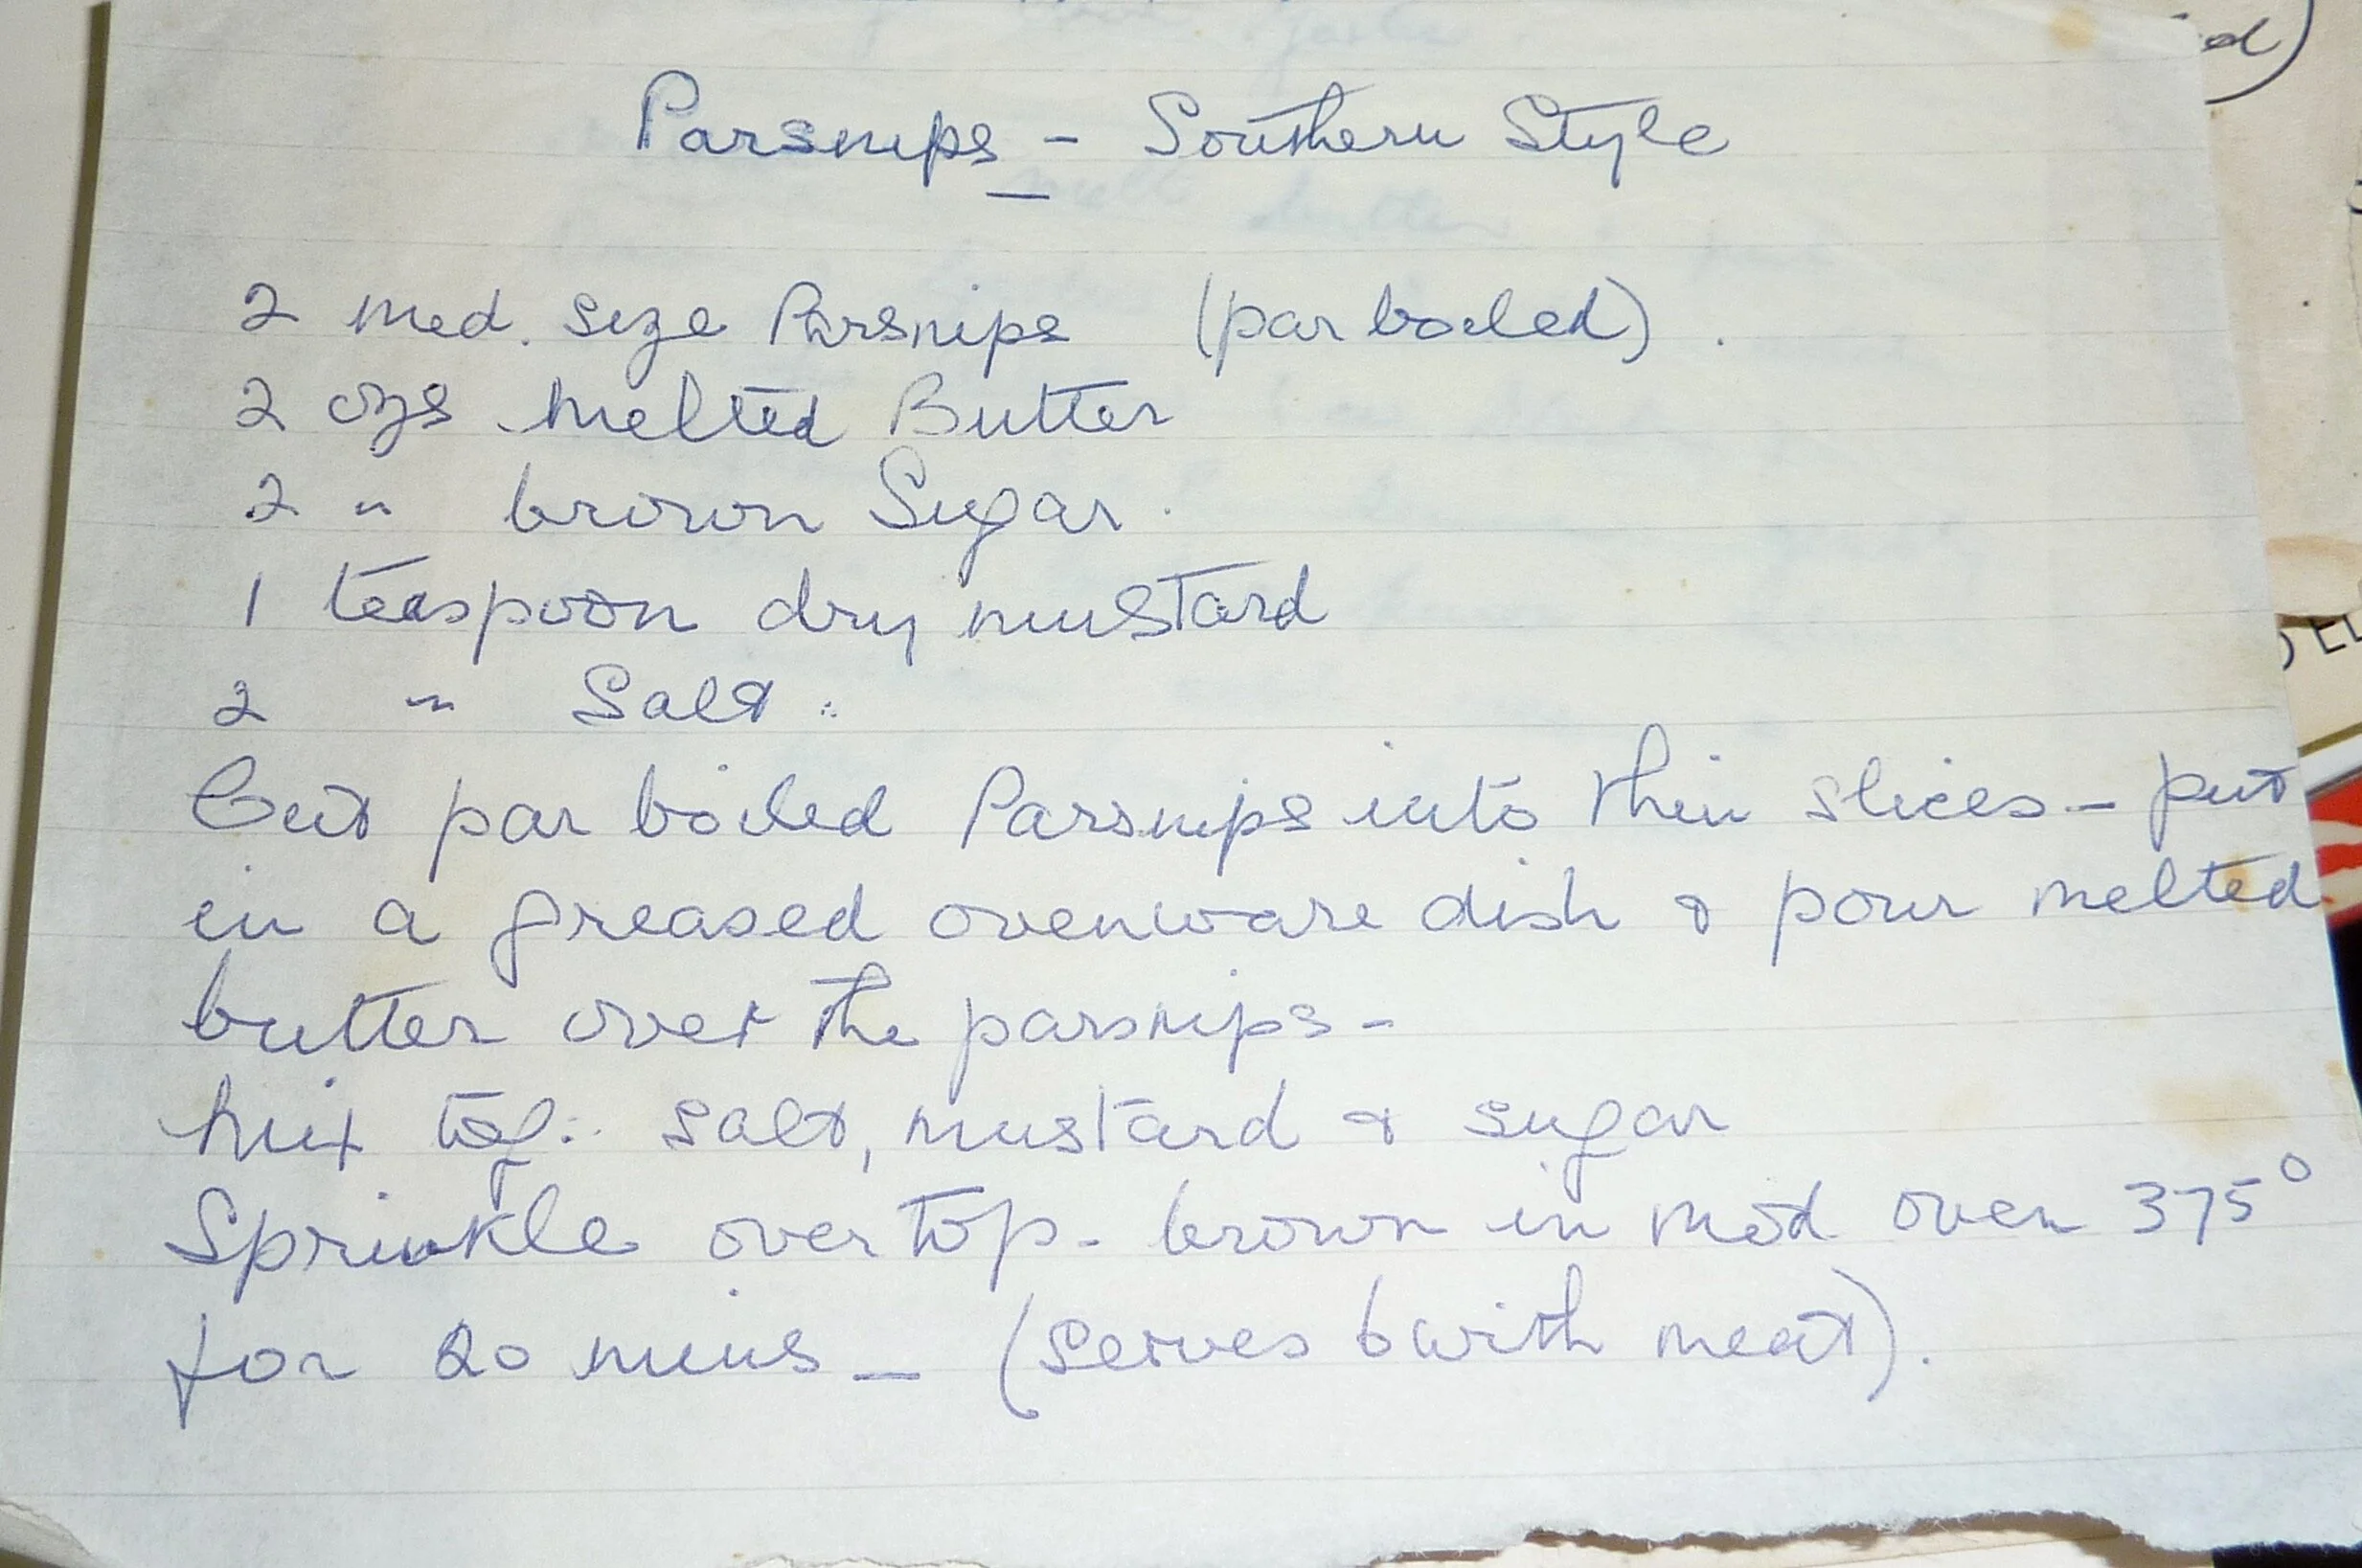 Parsnips - Southern Style
2 med. size Parsnips (par boiled).
2 ozs melted Butter
2 " brown Sugar.
1 teaspoon dry mustard
2 " Salt.
Cut par boiled Parsnips into thin slices - put
in a greased ovenware dish & pour melted
butter over the parsnips -
Mix tog. salt, mustard & sugar
Sprinkle over top - brown in mod oven 375°
for 20 mins - (serves 6 with meat).